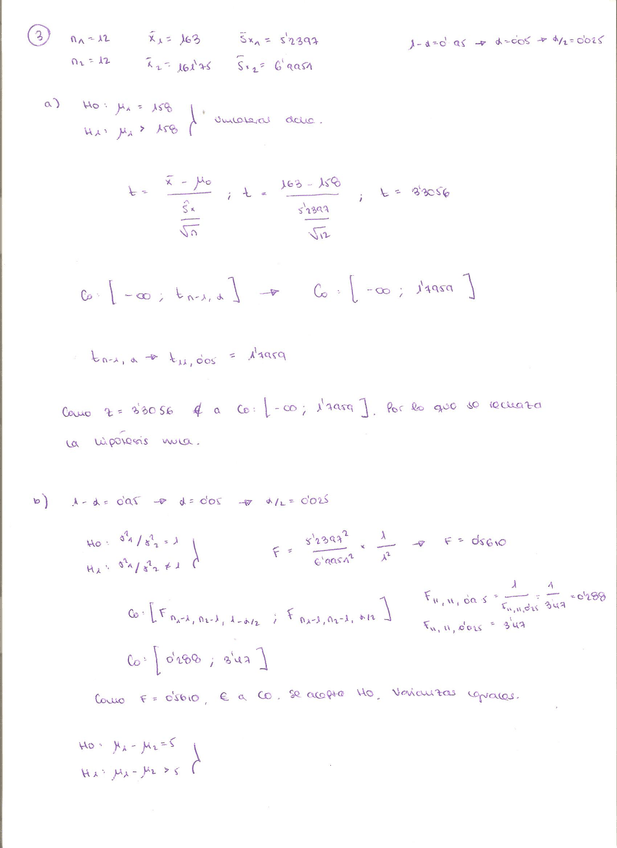 ③ n₁ = 12 x̄₁ = 163 Ŝx₁ = 5'2397 1-α = 0'95 → α = 0'05 → α/2 = 0'025
n₂ = 12 x̄₂ = 161'75 Ŝx₂ = 6'9951
a) H0: μ₁ = 158
H1: μ₁ > 158 } unilateral dcha.
t = (x̄ - μ₀) / (Ŝx / √n) ; t = (163 - 158) / (5'2397 / √12) ; t = 3'3056
C0: [-∞ ; t n-1, α] → C0: [-∞ ; 1'7959]
t n-1, α → t 11, 0'05 = 1'7959
Como z = 3'3056 ∉ a C0: [-∞ ; 1'7959]. Por lo que se rechaza
la hipótesis nula.
b) 1-α = 0'95 → α = 0'05 → α/2 = 0'025
H0: σ²₁/σ²₂ = 1
H1: σ²₁/σ²₂ ≠ 1 } F = 5'2397² / 6'9951² × 1/1² → F = 0'5610
C0: [F n₁-1, n₂-1, 1-α/2 ; F n₁-1, n₂-1, α/2] F 11, 11, 0'975 = 1 / F 11, 11, 0'025 = 1 / 3'47 = 0'288
F 11, 11, 0'025 = 3'47
C0: [0'288 ; 3'47]
Como F = 0'5610, ∈ a C0. Se acepta H0. Varianzas iguales.
H0: μ₁ - μ₂ = 5
H1: μ₁ - μ₂ > 5 }